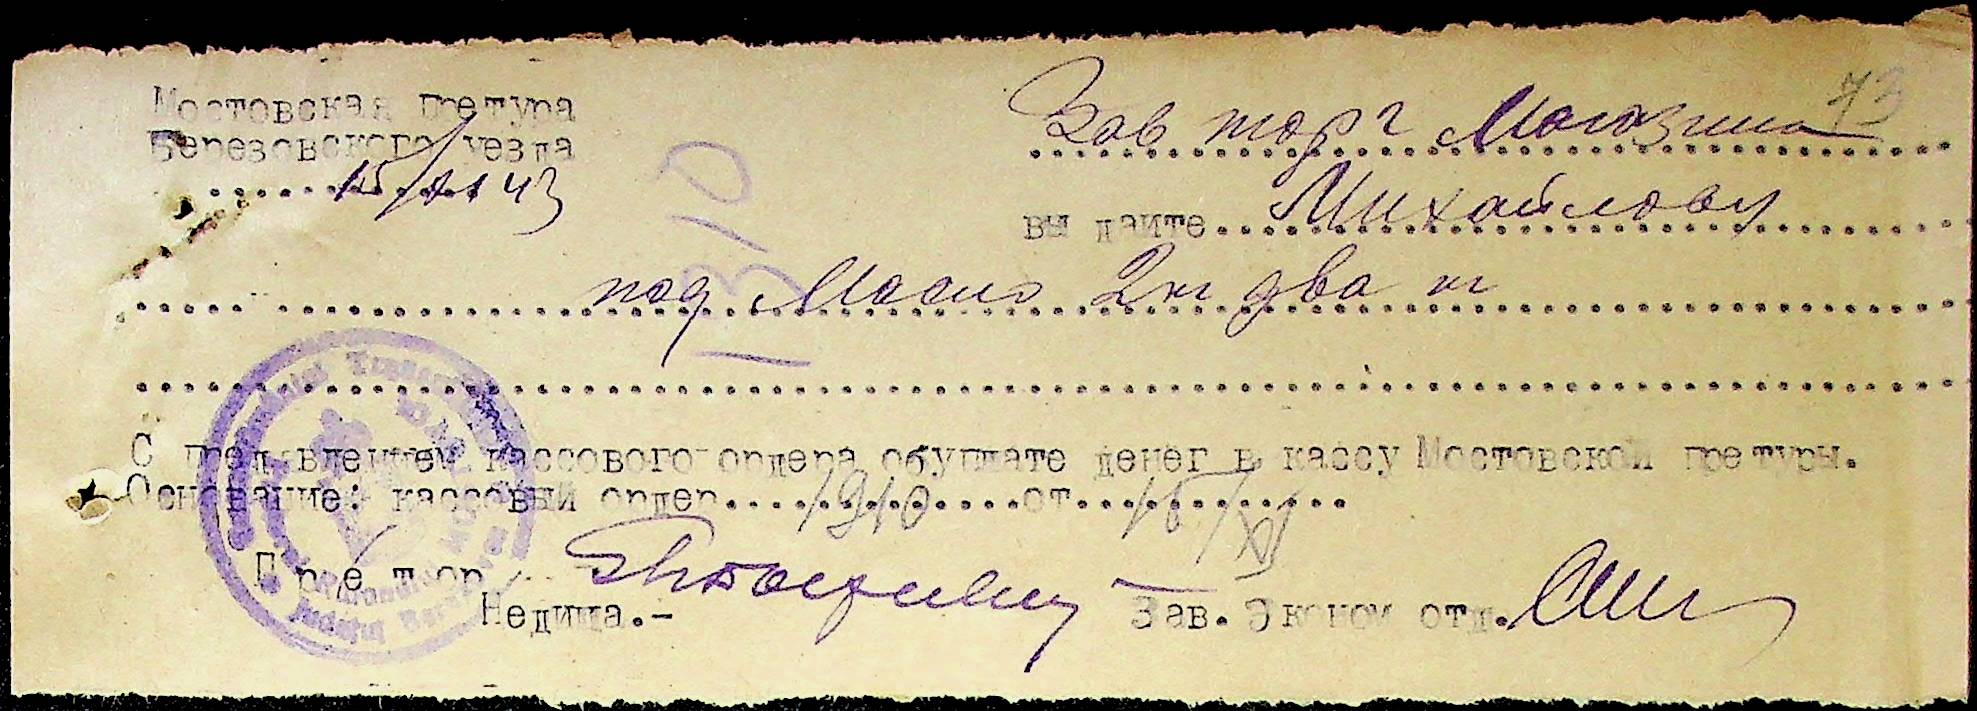 73
Мостовская претура
Березовского уезда
15/XI 43
310
Зав торг Могазина
выдайте Михайлову
под Масло 2 кг два кг
С пред'явлением кассового ордера об уплате денег в кассу Мостовской претуры.
Основание: кассовый ордер 1910 от 15/XI
Претор
Недица.-
Зав. Эконом отд.